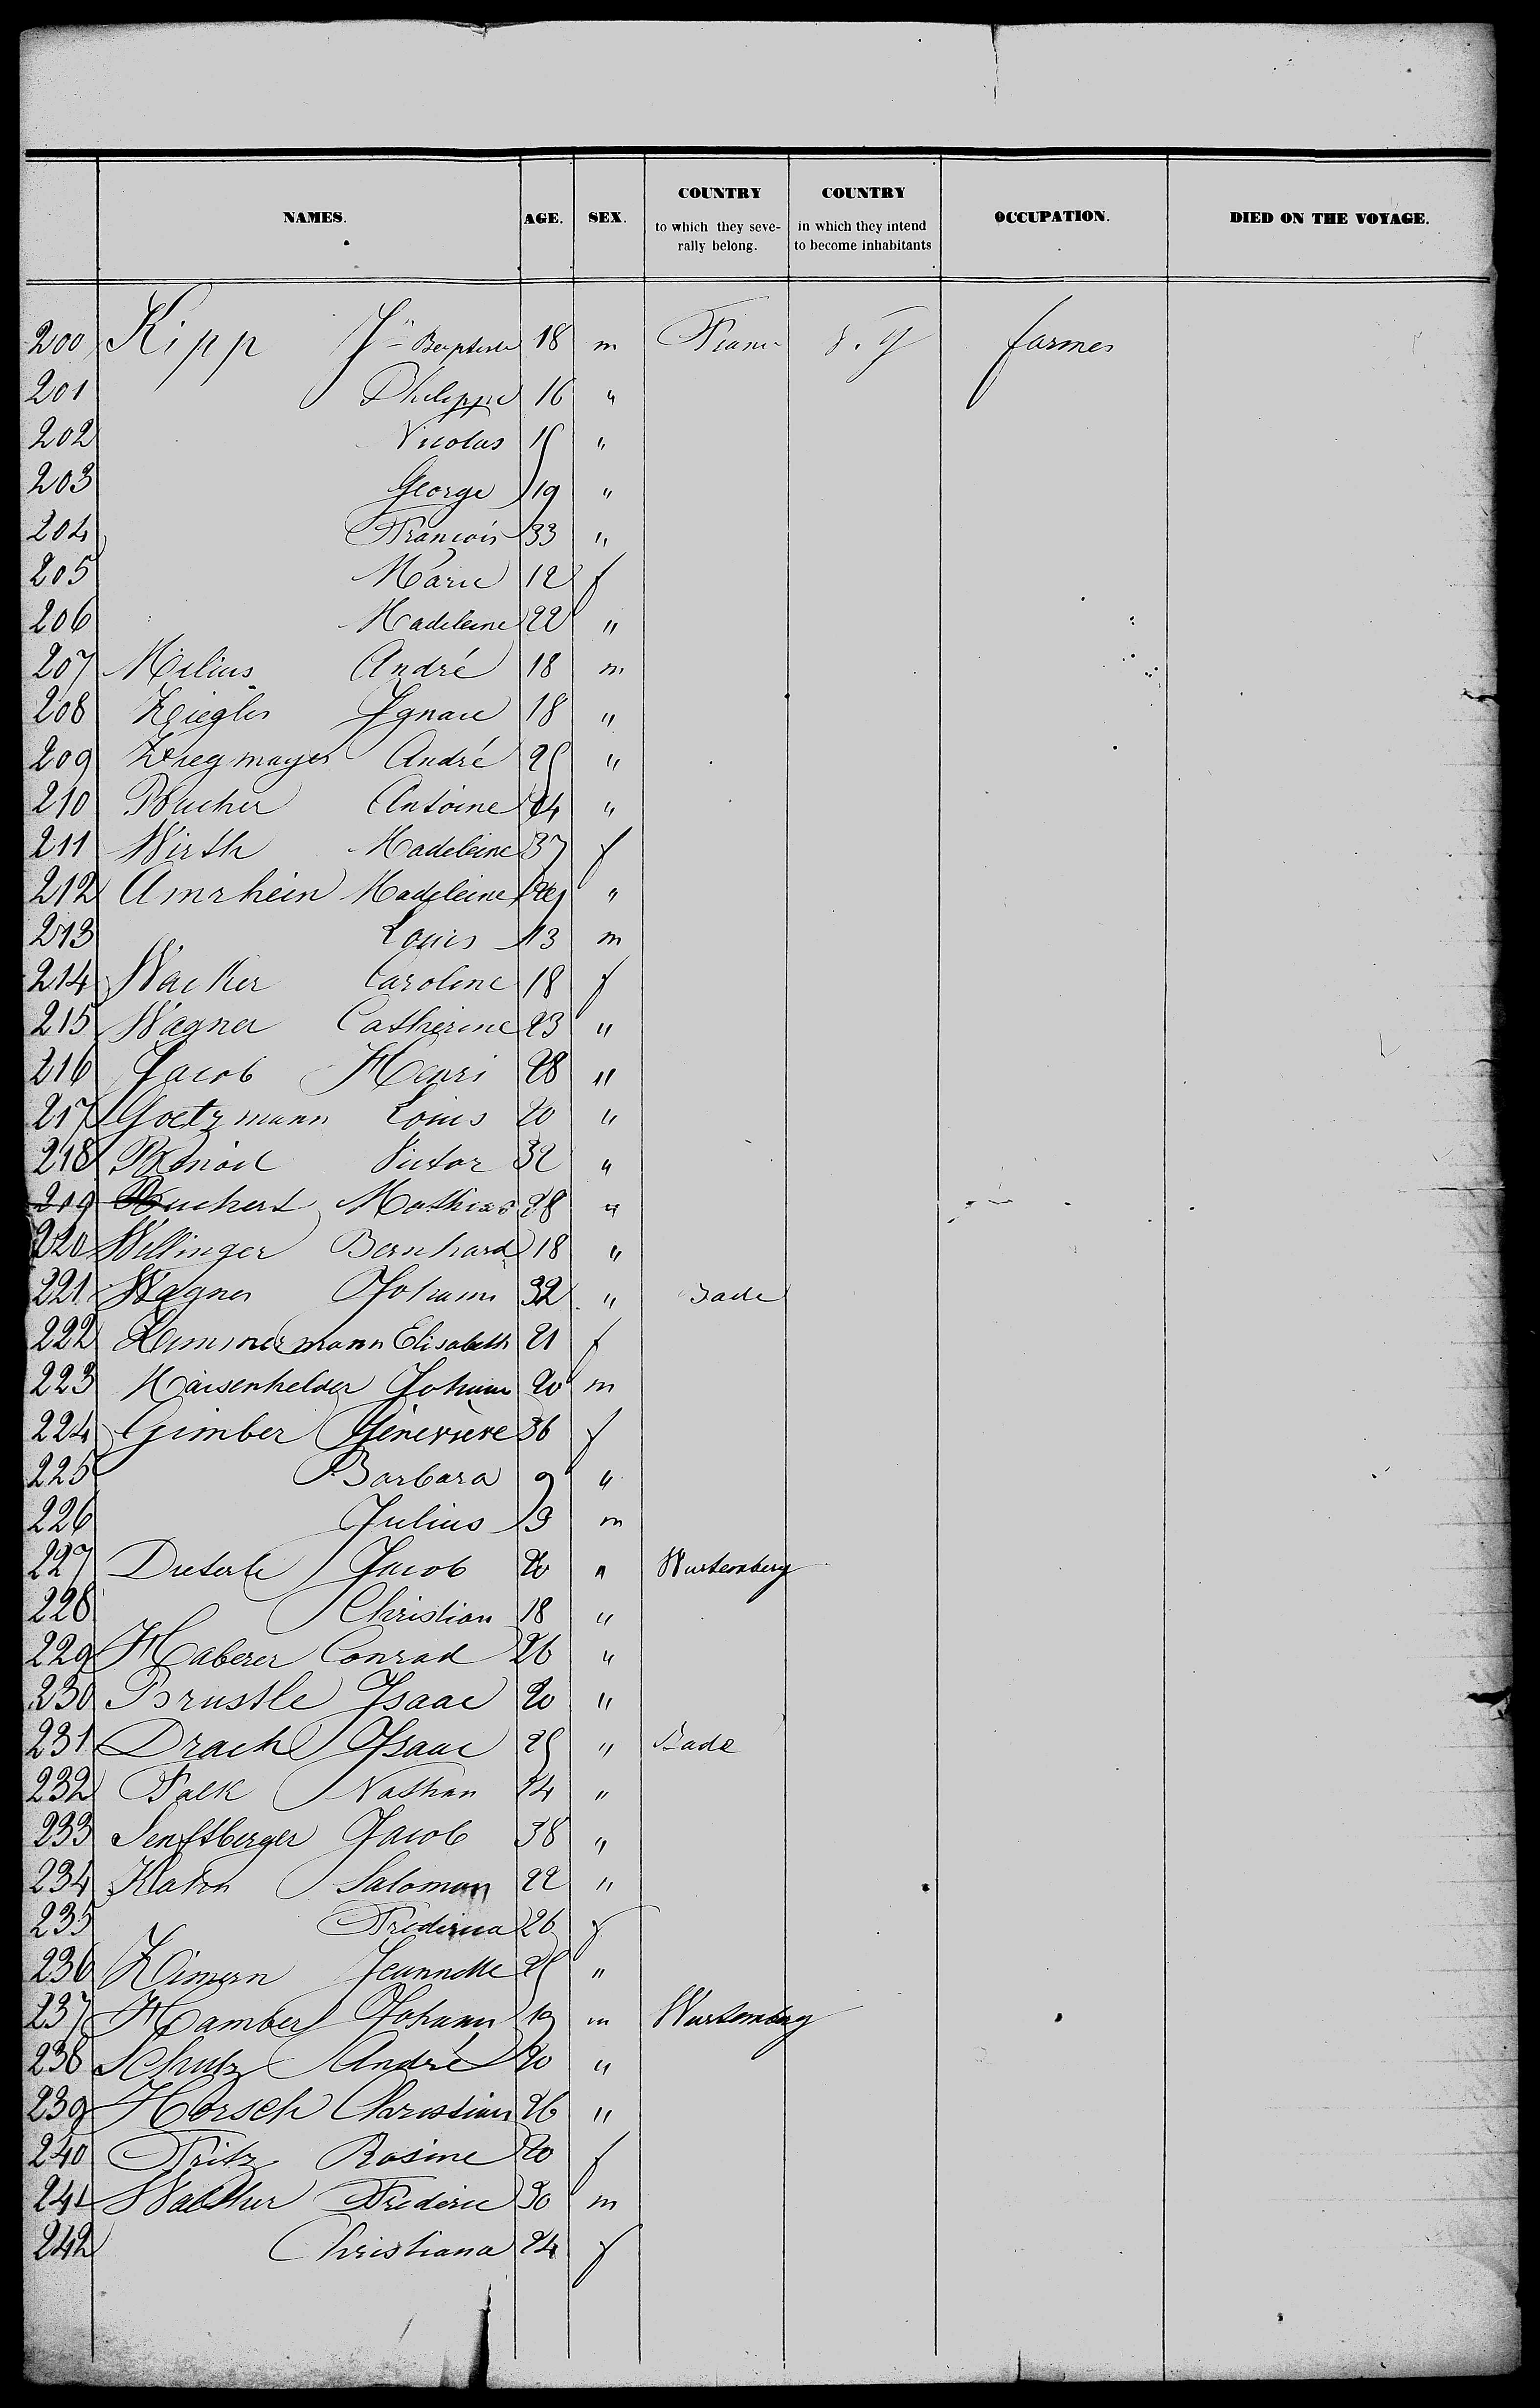 NAMES. AGE. SEX. COUNTRY to which they severally belong. COUNTRY in which they intend to become inhabitants OCCUPATION. DIED ON THE VOYAGE.
200 Kipp Jn Baptiste 18 m France farmer
201 Philippe 16 "
202 Nicolas 15 "
203 George 19 "
204 Francois 33 "
205 Marie 12 f
206 Madeleine 22 "
207 Milius André 18 m
208 Ziegler Ignace 18 "
209 André 25 "
210 Bucher Antoine "
211 Wirth Madeleine 37 f
212 Amrhein Madeleine "
213 Louis 13 m
214 Wacker Caroline 18 f
215 Wagner Catherine 23 "
216 Jacob Henri 28 "
217 Goetzmann Louis 20 "
218 Victor 32 "
219 Mathias 28 "
220 Willinger Bernhard 18 "
221 Wagner Johann 32 " Bade
222 Zimmermann Elisabeth 21 f
223 Maisenhelder Johann 20 m
224 Gimber Génevieve 36 f
225 Barbara 9 "
226 Julius 9 m
227 Dieterle Jacob 20 " Wurtemberg
228 Christian 18 "
229 Haberer Conrad 26 "
230 Brustle Isaac 20 "
231 Drach Isaac 25 " Bade
232 Falk Nathan 24 "
233 Senftberger Jacob 38 "
234 Katon Salomon 22 "
235 Frederica 26 f
236 Zimern Jeannette 25 "
237 Hamber Johann 19 m Wurtemberg
238 Schutz André 20 "
239 Horsch Christian 26 "
240 Fritz Rosine 20 f
241 Walther Frederic 30 m
242 Christiana 24 f